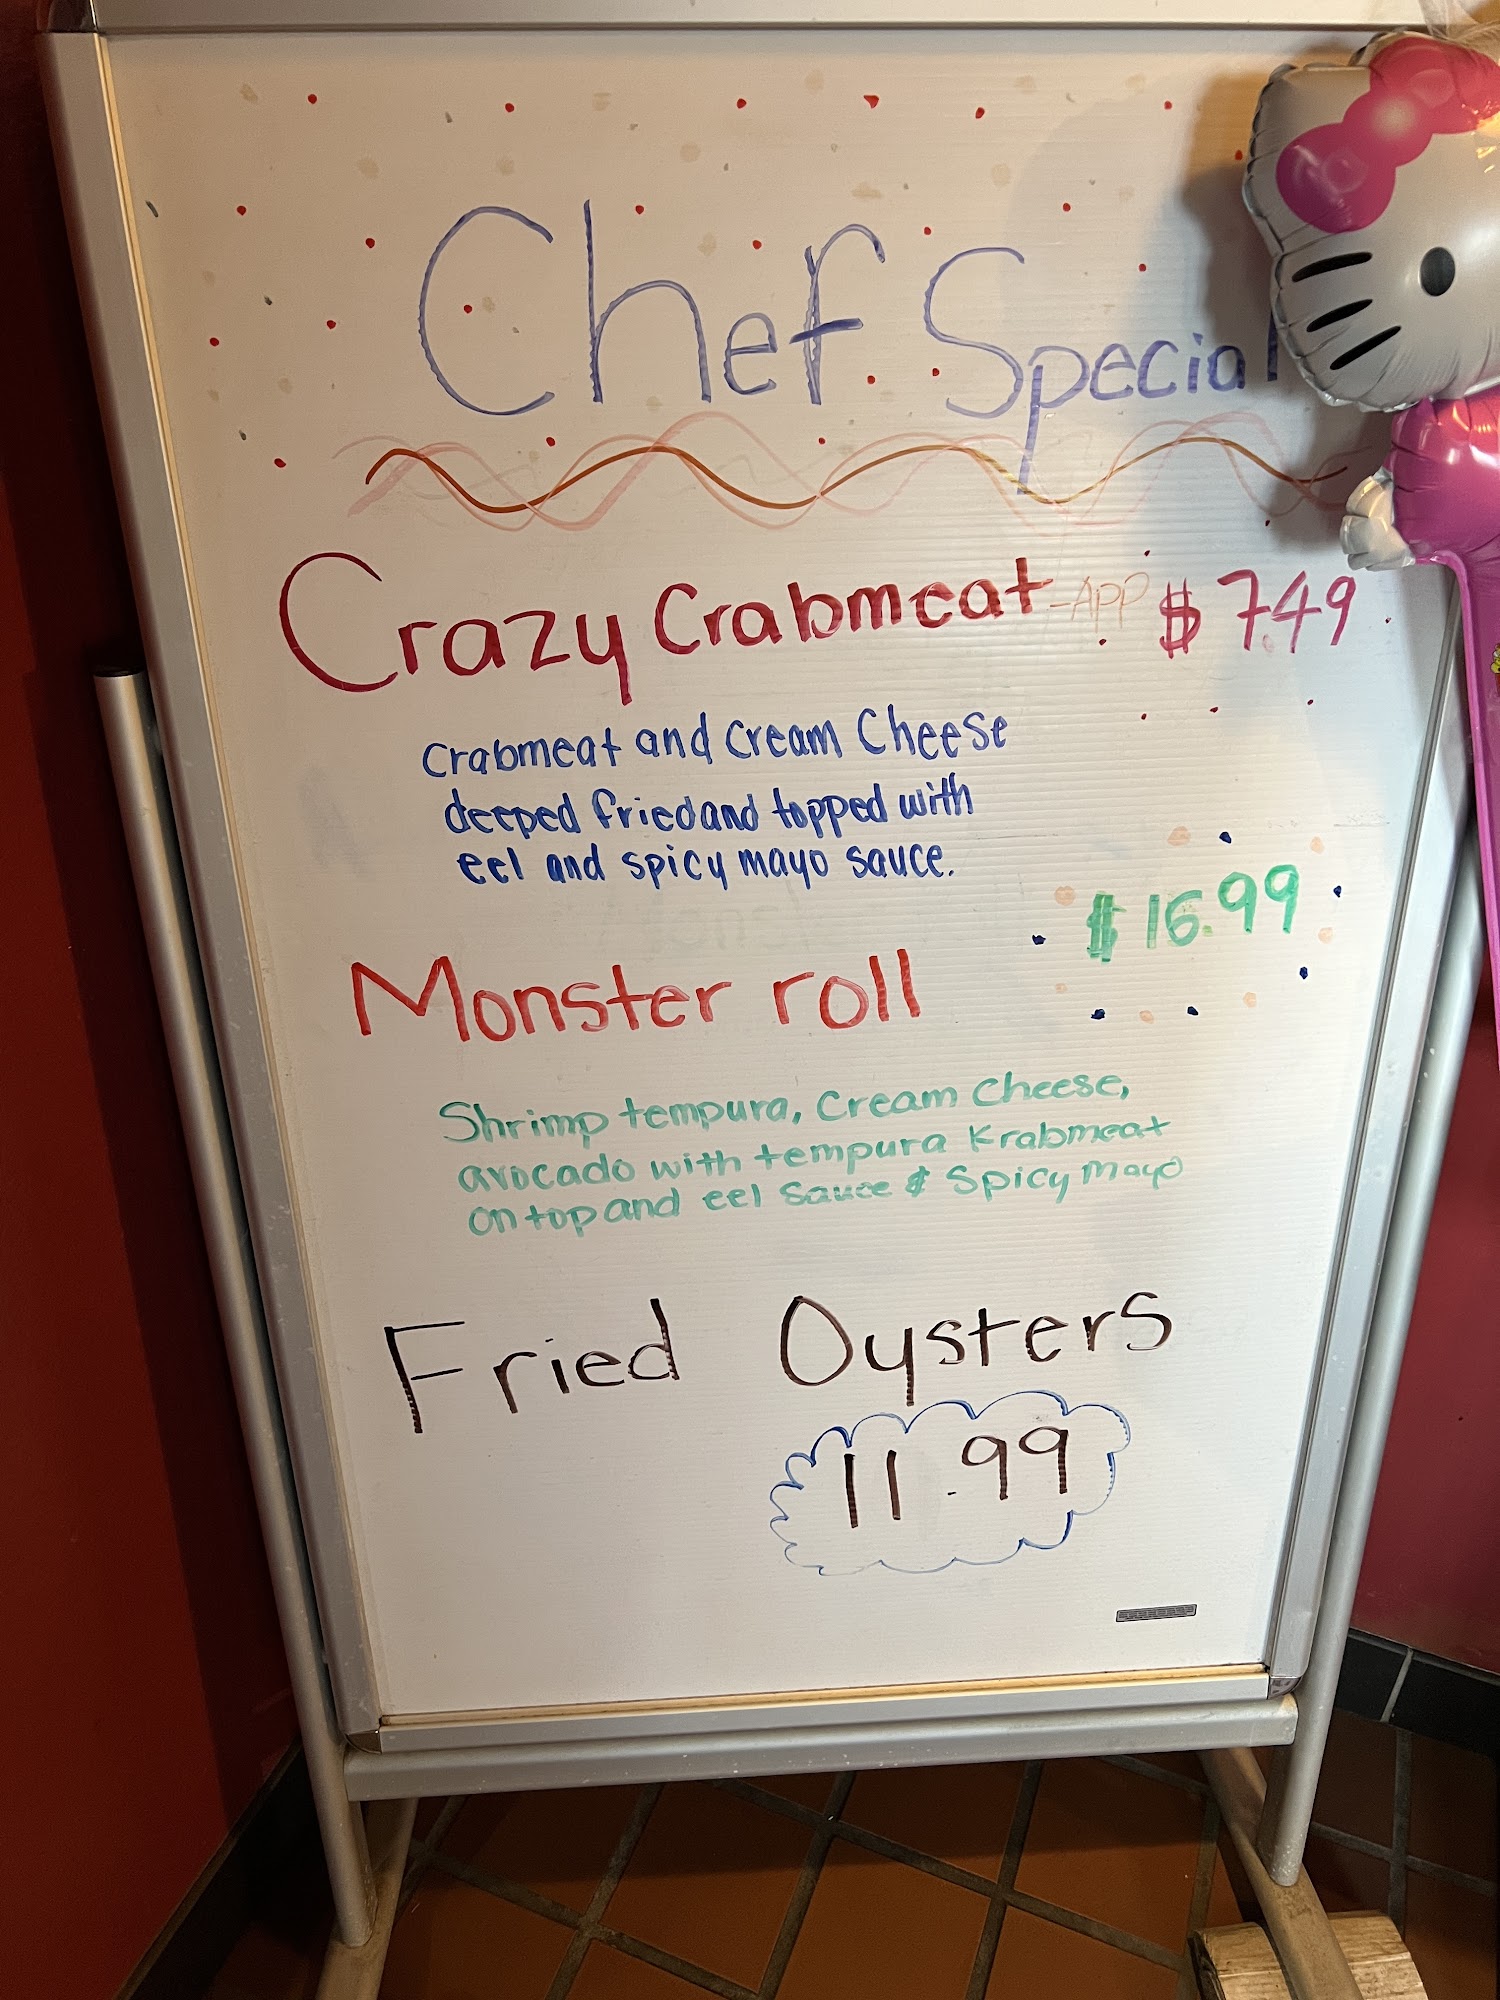 Chef Special
Crazy Crabmeat -APP $ 7.49
Crabmeat and Cream Cheese
deeped fried and topped with
eel and spicy mayo sauce.
$ 16.99
Monster roll
Shrimp tempura, Cream Cheese,
avocado with tempura Krabmeat
on top and eel Sauce & Spicy Mayo
Fried Oysters
11.99